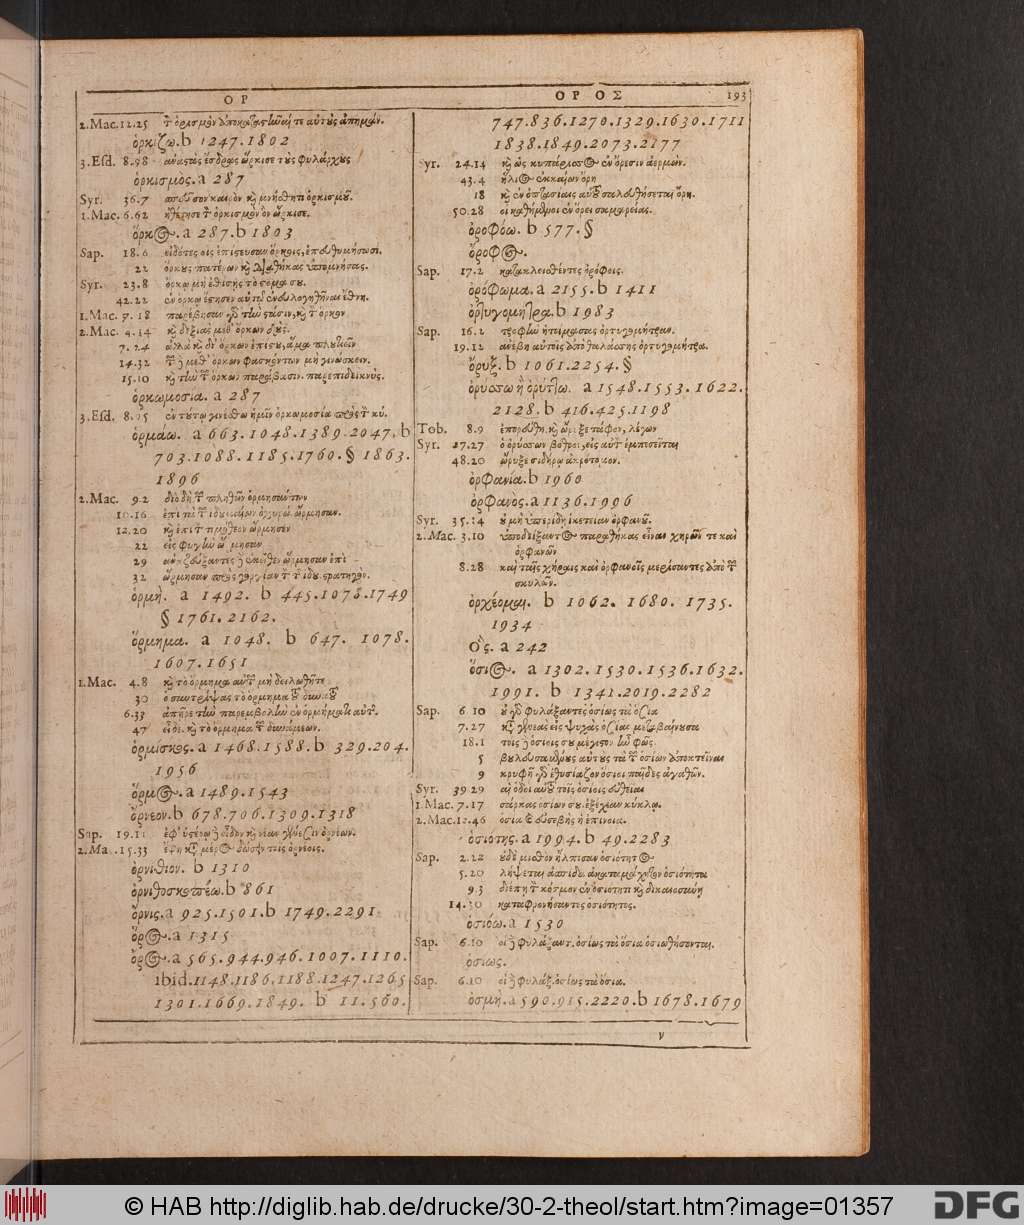 ΟΡ
ΟΡ ΟΣ 193
2.Mac.12.25 τὸν ὁρισμὸν ἀποκαταστῆσαι τε αὐτοὺς ἀπημάν.
ὁρκίζω.b 1247.1802
3.Esd. 8.98 ἀναστὰς ἔσδρας ὥρκισε τοὺς φυλάρχους
ὁρκισμος.a 287
Syr. 36.7 καιρὸν καὶ μνήσθητι ὁρκισμοῦ.
1.Mac.6.62 ἠθέτησε τὸν ὁρκισμὸν ὃν ὥρκισε.
ὅρκος.a 287.b 1803
Sap. 18.6 εἰδότες οἷς ἐπίστευσαν ὅρκοις, ἐπευθυμήσωσι.
22 ὅρκους πατέρων καὶ διαθήκας ὑπομνήσας.
Syr. 23.8 ὅρκῳ μὴ ἐθίσῃς τὸ στόμα σου.
42.22 ἐν ὅρκῳ ἔστησεν αὐτῷ ἐνευλογηθῆναι ἔθνη.
1.Mac. 7.18 παρέβησαν γὰρ τὴν στάσιν, καὶ τὸν ὅρκον
2.Mac. 4.14 καὶ δεξιὰς μεθ' ὅρκων δούς.
7.24 ἀλλὰ καὶ δι' ὅρκων ἐπίστου, ἅμα πλουτιεῖν
14.32 τῶν δὲ μεθ' ὅρκων φασκόντων μὴ γινώσκειν.
15.10 καὶ τὴν τῶν ὅρκων παράβασιν. παρεπιδεικνύς.
ὁρκωμοσία. a 287
3.Esd. 8. ἐν τούτῳ γινέσθω ἡμῖν ὁρκωμοσία πρὸς τὸν κύ.
ὁρμάω. a 663.1048.1389.2047. b
703.1088.1185.1760. § 1863.
1896
2.Mac. 9.2 διὸ δὴ τῶν πληθῶν ὁρμησάντων
10.16 ἐπὶ τὰ τῶν ἰδουμαίων ὀχυρώ. ὥρμησαν.
12.20 καὶ ἐπὶ τὸν τιμόθεον ὥρμησεν
22 εἰς φυγὴν ὥρμησαν
29 ἀναζεύξαντες δὲ ἐκεῖθεν ὥρμησαν ἐπὶ
32 ὥρμησαν πρὸς γοργίαν τὸν τῆς ἰδου. στρατηγόν.
ὁρμή. a 1492. b 445.1078.1749
§ 1761.2162.
ὅρμημα. a 1048. b 647. 1078.
1607.1651
1.Mac. 4.8 καὶ τὸ ὅρμημα αὐτῶν μὴ δειλωθῆτε
30 ὁ συντρίψας τὸ ὅρμημα τοῦ δυνατοῦ
6.33 ἀπῆρε τὴν παρεμβολὴν ἐν ὁρμήματι αὐτῆς.
47 εἶδε. καὶ τὸ ὅρμημα τῶν δυνάμεων.
ὁρμίσκος.a 1468.1588.b 329.204.
1956
ὅρμος.a 1489.1543
ὄρνεον.b 678.706.1309.1318
Sap. 19.11 ἐφ' ὑστέρῳ δὲ εἶδον καὶ νέαν γένεσιν ὀρνέων.
2.Ma...15.33 ἔφη κατὰ μέρος δώσειν τοῖς ὀρνέοις.
ὀρνίθιον. b 1310
ὀρνιθοσκοπέω.b 861
ὄρνις.a 925.1501.b 1749.2291
ὄρος.a 1315
ὄρος.a 565.944.946.1007.1110.
ibid.1148.1186.1188.1247.1265
1301.1669.1849. b 11.560.
747.836.1270.1329.1630.1711
1838.1849.2073.2177
Syr. 24.14 καὶ ὡς κυπάρισσος ἐν ὄρεσιν ἀερμών.
43.4 ἥλιος ἐκκαίων ὄρη
18 καὶ ἐν ὀπτασίαις αὐτοῦ σαλευθήσεται ὄρη.
50.28 οἱ καθήμενοι ἐν ὄρει σαμαρείας.
ὀροφόω. b 577. §
ὄροφος.
Sap. 17.2 κατακλεισθέντες ὀρόφοις.
ὀρόφωμα.a 2155.b 1411
ὀρτυγομήτρα.b 1983
Sap. 16.2 τροφὴν ἡτοίμασας ὀρτυγομήτραν.
19.12 ἀνέβη αὐτοῖς ἀπὸ θαλάσσης ὀρτυγομήτρα.
ὄρυξ. b 1061.2254. §
ὀρύσσω ἢ ὀρύττω. a 1548.1553.1622.
2128.b 416.425.1198
Tob. 8.9 ἐπορεύθη. καὶ ὤρυξε τάφον, λέγων
Syr. 27.27 ὁ ὀρύσσων βόθρον, εἰς αὐτὸν ἐμπεσεῖται
48.20 ὤρυξε σιδήρῳ ἀκρότομον.
ὀρφανία.b 1960
ὀρφανὸς.a 1136.1996
Syr. 35.14 οὐ μὴ ὑπερίδῃ ἱκετείαν ὀρφανοῦ.
2.Mac. 3.10 ὑποδείξαντος παραθήκας εἶναι χηρῶν τε καὶ
ὀρφανῶν
8.28 καὶ ταῖς χήραις καὶ ὀρφανοῖς μερίσαντες ἀπὸ τῶν
σκυλῶν.
ὀρχέομαι. b 1062. 1680. 1735.
1934
Ὃς. a 242
ὅσιος. a 1302.1530.1536.1632.
1991. b 1341.2019.2282
Sap. 6.10 οἱ γὰρ φυλάξαντες ὁσίως τὰ ὅσια
7.27 κατὰ γενεὰς εἰς ψυχὰς ὁσίας μεταβαίνουσα
18.1 τοῖς δὲ ὁσίοις σου μέγιστον ἦν φῶς
5 βουλευσαμένους αὐτοὺς τὰ τῶν ὁσίων ἀποκτεῖναι
9 κρυφῆ γὰρ ἐθυσίαζον ὅσιοι παῖδες ἀγαθῶν.
Syr. 39.29 αἱ ὁδοὶ αὐτοῦ τοῖς ὁσίοις εὐθεῖαι
1.Mac.7.17 σάρκας ὁσίων σου. ἐξέχεαν κύκλῳ.
2.Mac.12.46 ὁσία καὶ εὐσεβὴς ἡ ἐπίνοια.
ὁσιότης.a 1994.b 49.2283
Sap. 2.22 οὐδὲ μισθὸν ἤλπισαν ὁσιότητος
5.20 λήψεται ἀσπίδα ἀκαταμάχητον ὁσιότητα
9.3 διέπῃ τὸν κόσμον ἐν ὁσιότητι καὶ δικαιοσύνῃ
14.30 καταφρονήσαντες ὁσιότητος.
ὁσιόω.a 1530
Sap. 6.10 οἱ γὰρ φυλάξαντ. ὁσίως τὰ ὅσια ὁσιωθήσονται.
ὁσίως.
Sap. 6.10 οἱ γὰρ φυλάξ. ὁσίως τὰ ὅσια.
ὀσμή.a 590.915.2220.b 1678.1679
y
© HAB http://diglib.hab.de/drucke/30-2-theol/start.htm?image=01357
DFG